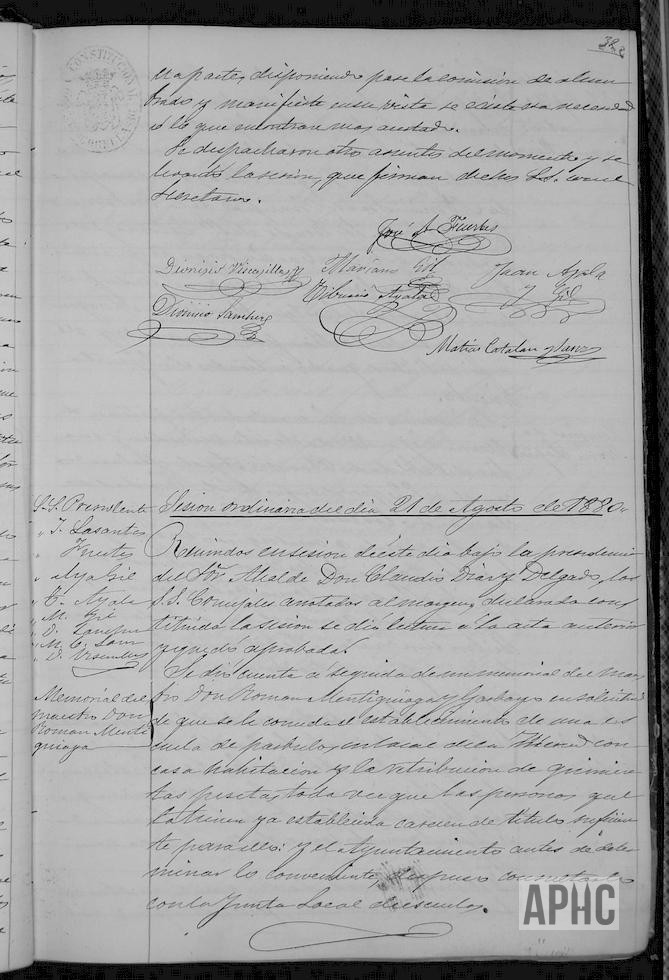 382
una parte, disponiendo pase la comision de alum
brado y manifieste en su vista si existe esa necesidad
ó lo que encontrare mas acertado.
Se despacharon otros asuntos del momento y se
levantó la sesion, que firman dichos S.S. con el
Secretario.
José Fuertes
Dionisio Viscasillas y
Mariano Gil
Juan Ayala
y Gil
Tiburcio Ayala
Dionisio Sanchez
Matias Catalan y Sanz
S.S. Presidente
" J. Lasantas
" Fuertes
" Ayala Gil
" T. Ayala
" M. Gil
" D. Sanchez
" M. C. Sanz
" D. Viscasillas
Sesion ordinaria del dia 21 de Agosto de 1880.
Reunidos en sesion de éste dia bajo la presidencia
del Sor. Alcalde Don Claudio Diaz y Delgado, los
S.S. Concejales anotados al margen, declarada cons
tituida la sesion se dió lectura á la acta anterior
y quedó aprobada.
Memorial del
maestro Don
Roman Menti
guiaga
Se dió cuenta á seguida de un memorial del maes
tro Don Roman Mentiguiaga y Garbayo en solicitud
de que se le conceda el establecimiento de una es
cuela de parbulos, en local de la con
casa habitacion y la retribucion de quinien
tas pesetas, toda vez que las personas que
la tienen ya establecida carecen de título suficien
te para ello: y el Ayuntamiento antes de deter
minar lo conveniente, dispuso consultarlo
con la Junta Local de escuelas.
APHC